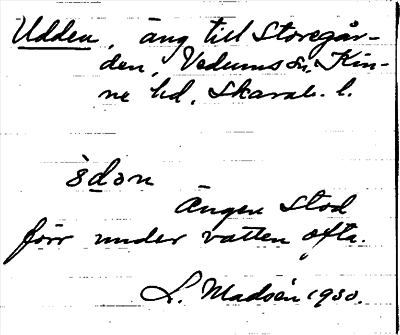 Udden, äng till Storegår-
den, Vedums sn, Kin-
ne hd, Skarab. l.
ùdən
Ängen stod
förr under vatten ofta.
L. Madsén 1930.